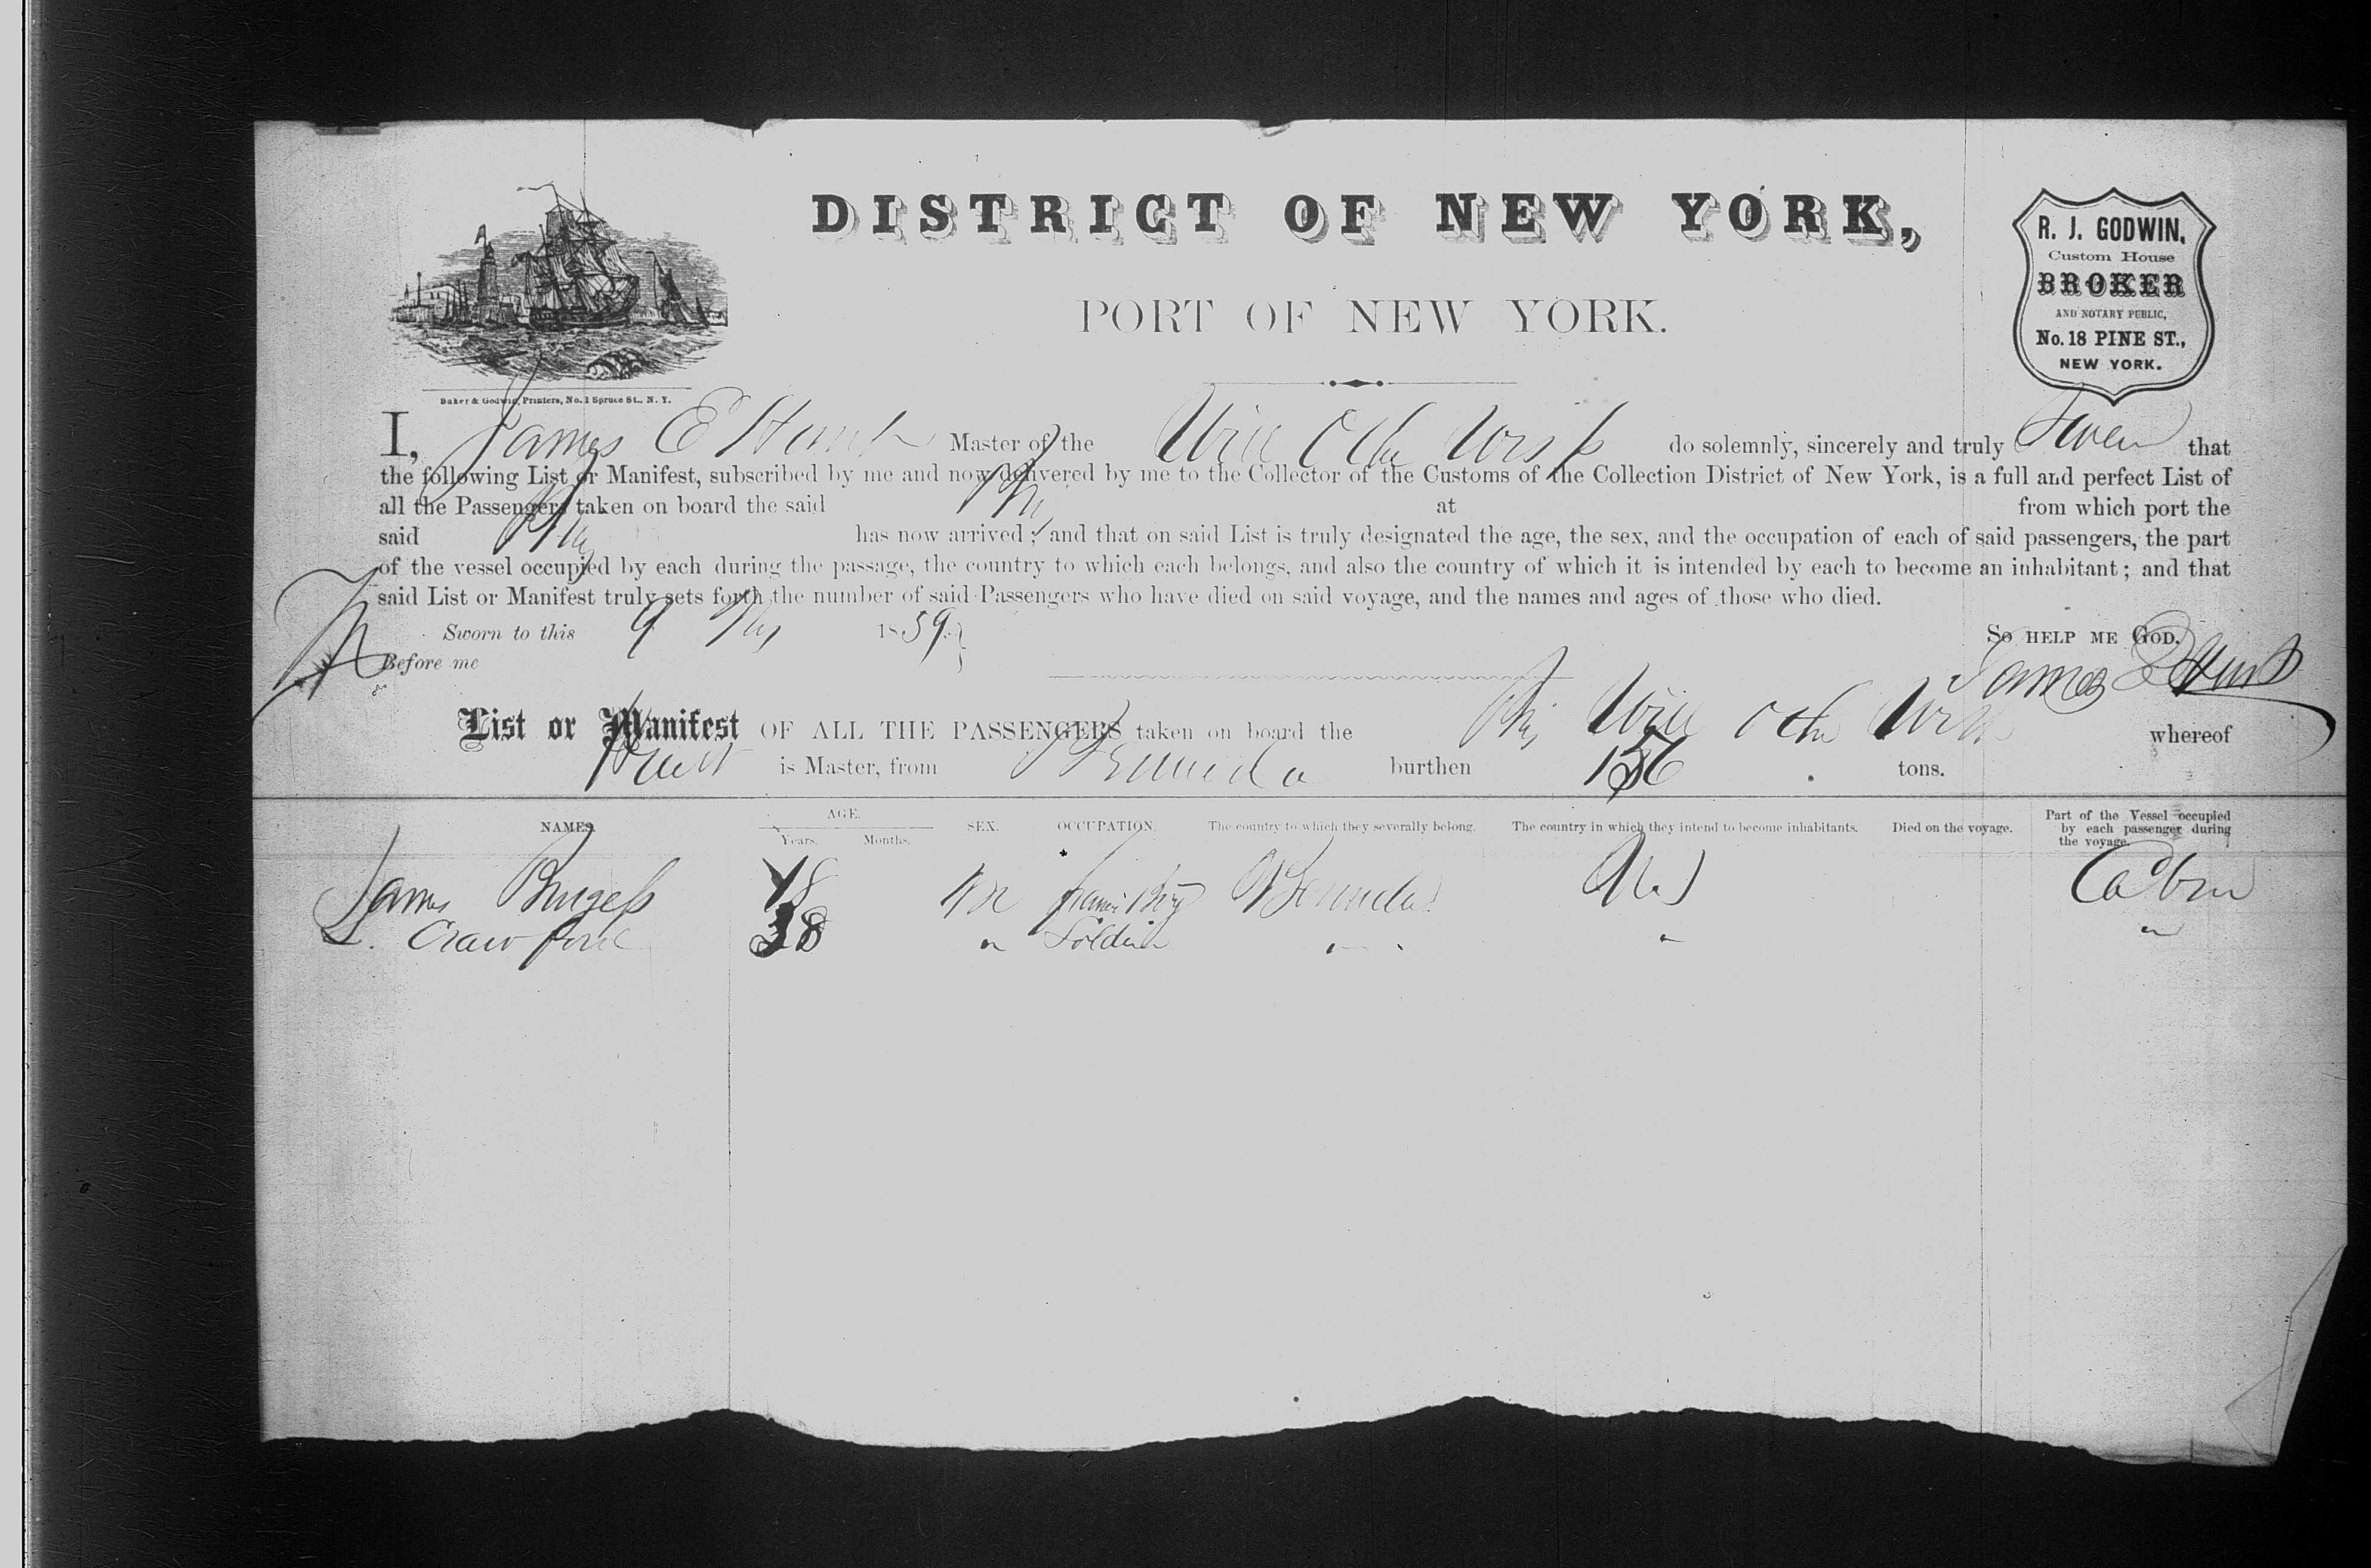 DISTRICT OF NEW YORK,
PORT OF NEW YORK.
R. J. GODWIN,
Custom House
BROKER
AND NOTARY PUBLIC,
No. 18 PINE ST.,
NEW YORK.
Baker & Godwin, Printers, No. 1 Spruce St., N. Y.
I, James E Hunt Master of the Will O the Wisp do solemnly, sincerely and truly Swear that
the following List or Manifest, subscribed by me and now delivered by me to the Collector of the Customs of the Collection District of New York, is a full and perfect List of
all the Passengers taken on board the said at from which port the
said has now arrived; and that on said List is truly designated the age, the sex, and the occupation of each of said passengers, the part
of the vessel occupied by each during the passage, the country to which each belongs, and also the country of which it is intended by each to become an inhabitant; and that
said List or Manifest truly sets forth the number of said Passengers who have died on said voyage, and the names and ages of those who died.
Sworn to this 9 1859 So help me God.
Before me James E Hunt
List or Manifest OF ALL THE PASSENGERS taken on board the Will o the Wisp whereof
Hunt is Master, from Bermuda burthen 156 tons.
NAMES. AGE. Years. Months. SEX. OCCUPATION. The country to which they severally belong. The country in which they intend to become inhabitants. Died on the voyage. Part of the Vessel occupied by each passenger during the voyage.
James Burgess 48 Bermuda US Cabin
Crawford 38 " Soldier " " "